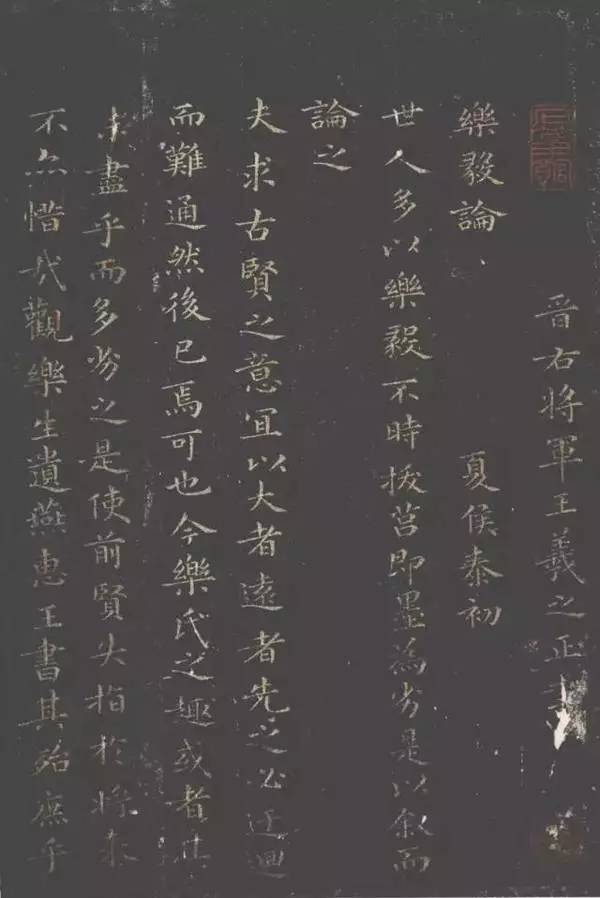 晉右將軍王羲之正書
樂毅論 夏侯泰初
世人多以樂毅不時拔莒即墨為劣是以叙而
論之
夫求古賢之意冝以大者遠者先之必迂迴
而難通然後已焉可也今樂氏之趣或者其
未盡乎而多劣之是使前賢失指於將來
不亦惜哉觀樂生遺燕惠王書其殆庶乎